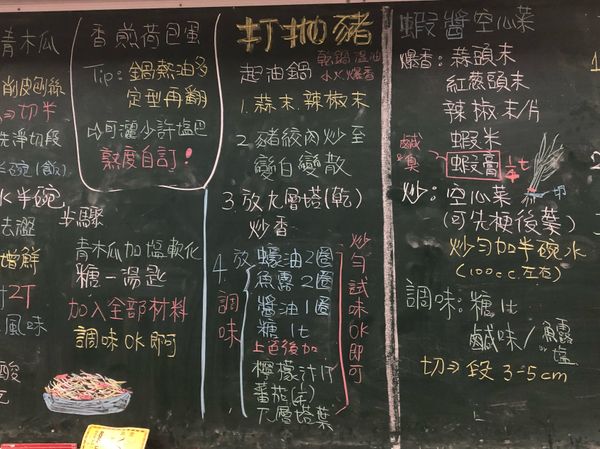 青木瓜
削皮刨絲
⇒切半
洗淨切段
半碗(飯)
水半碗
去澀
增鮮
2T
風味
酸
步驟
青木瓜加塩軟化
糖一湯匙
加入全部材料
調味OK即可
香煎荷包蛋
Tip: 鍋熱油多
定型再翻
以可灑少許塩巴
熟度自訂!
打拋豬
起油鍋 乾鍋溫油
小火爆香
1. 蒜末.辣椒末
2. 豬絞肉炒至
變白變散
3. 放九層塔(乾)
炒香
4. 放調味
蠔油2圈
魚露2圈
醬油1圈
糖 1t
上色後加
檸檬汁
番茄
九層塔葉
炒勻試味OK即可
蝦醬空心菜
爆香: 蒜頭末
紅葱頭末
辣椒末/片
蝦米
鹹臭 蝦膏 1/4t
炒: 空心菜 切
(可先梗後葉)
炒勻加半碗水
(100cc左右)
調味: 糖1t
鹹味/魚露
塩
切⇒段 3-5cm